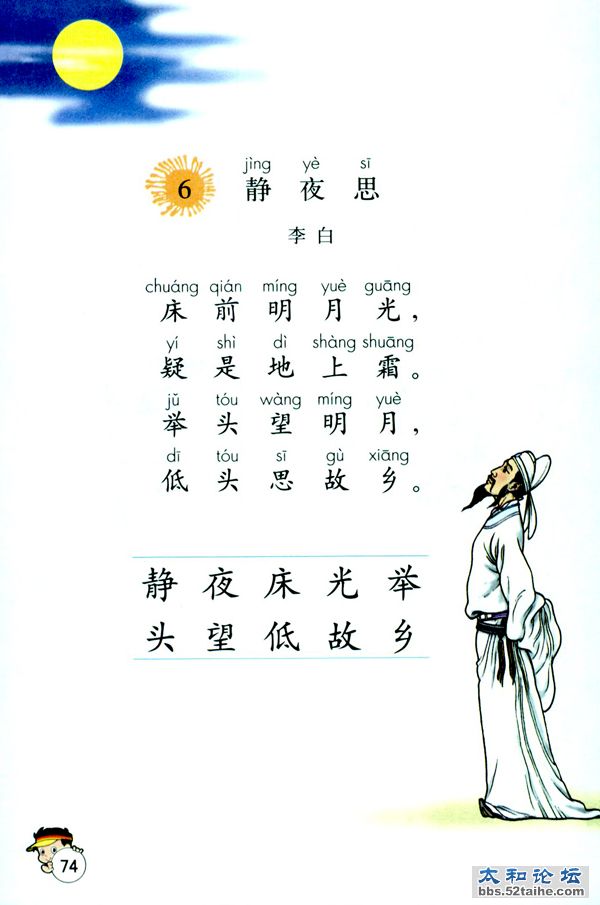 jìng yè sī
6 静夜思
李白
chuáng qián míng yuè guāng
床前明月光，
yí shì dì shàng shuāng
疑是地上霜。
jǔ tóu wàng míng yuè
举头望明月，
dī tóu sī gù xiāng
低头思故乡。
静夜床光举
头望低故乡
74
太和论坛
bbs.52taihe.com